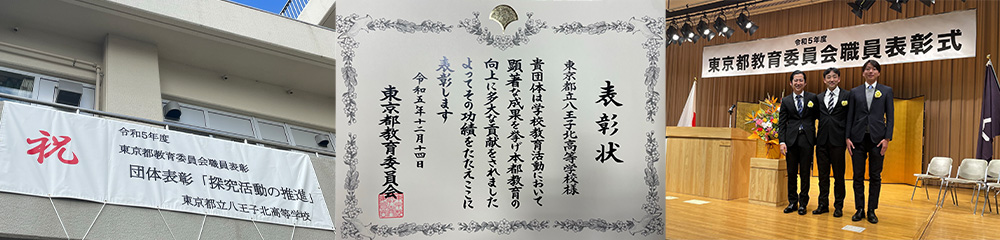 祝
令和5年度
東京都教育委員会職員表彰
団体表彰「探究活動の推進」
東京都立八王子北高等学校
表彰状
東京都立八王子北高等学校様
貴団体は学校教育活動において
顕著な成果を挙げ本都教育の
向上に多大な貢献をされました
よってその功績をたたえここに
表彰します
令和五年十二月十四日
東京都教育委員会
令和5年度
東京都教育委員会職員表彰式